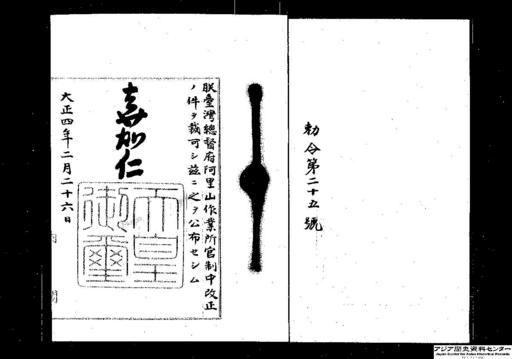 勅令第二十五號
朕臺灣總督府阿里山作業所官制中改正
ノ件ヲ裁可シ茲ニ之ヲ公布セシム
嘉仁
天皇
御璽
大正四年二月二十六日
アジア歴史資料センター
Japan Center for Asian Historical Records